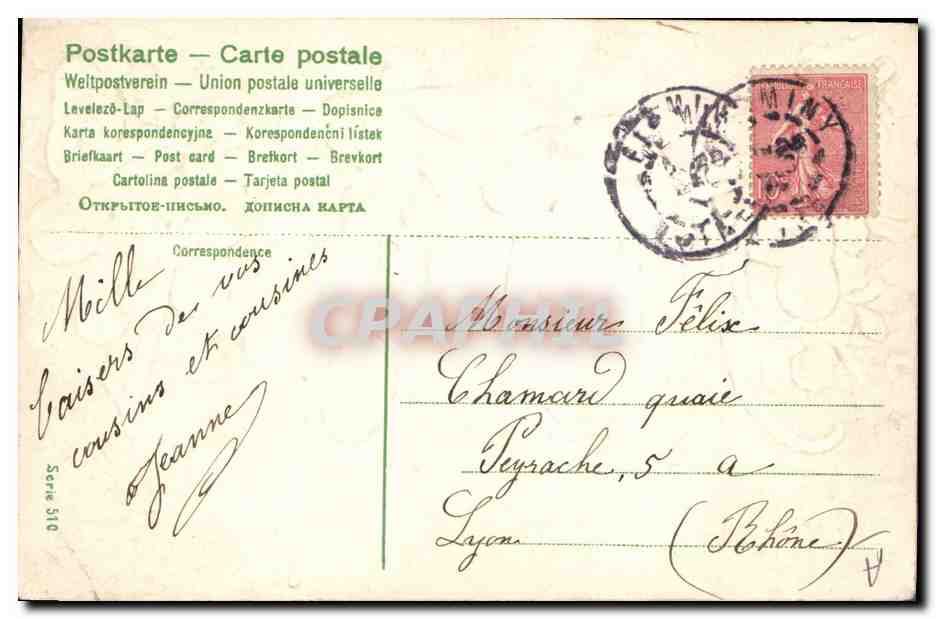 Postkarte — Carte postale
Weltpostverein — Union postale universelle
Levelező-Lap — Correspondenzkarte — Dopisnice
Karta korespondencyjna — Korespondenční lístek
Briefkaart — Post card — Brefkort — Brevkort
Cartolina postale — Tarjeta postal
Открытое-письмо. дописна карта
FRANÇAISE
10
FIRMINY
FIRMINY
Correspondence
Mille
baisers de vos
cousins et cousines
Jeanne
Serie 510
CPAPHIL
Monsieur Félix
Chamard quaie
Peyrache, 5 a
Lyon (Rhône)
A